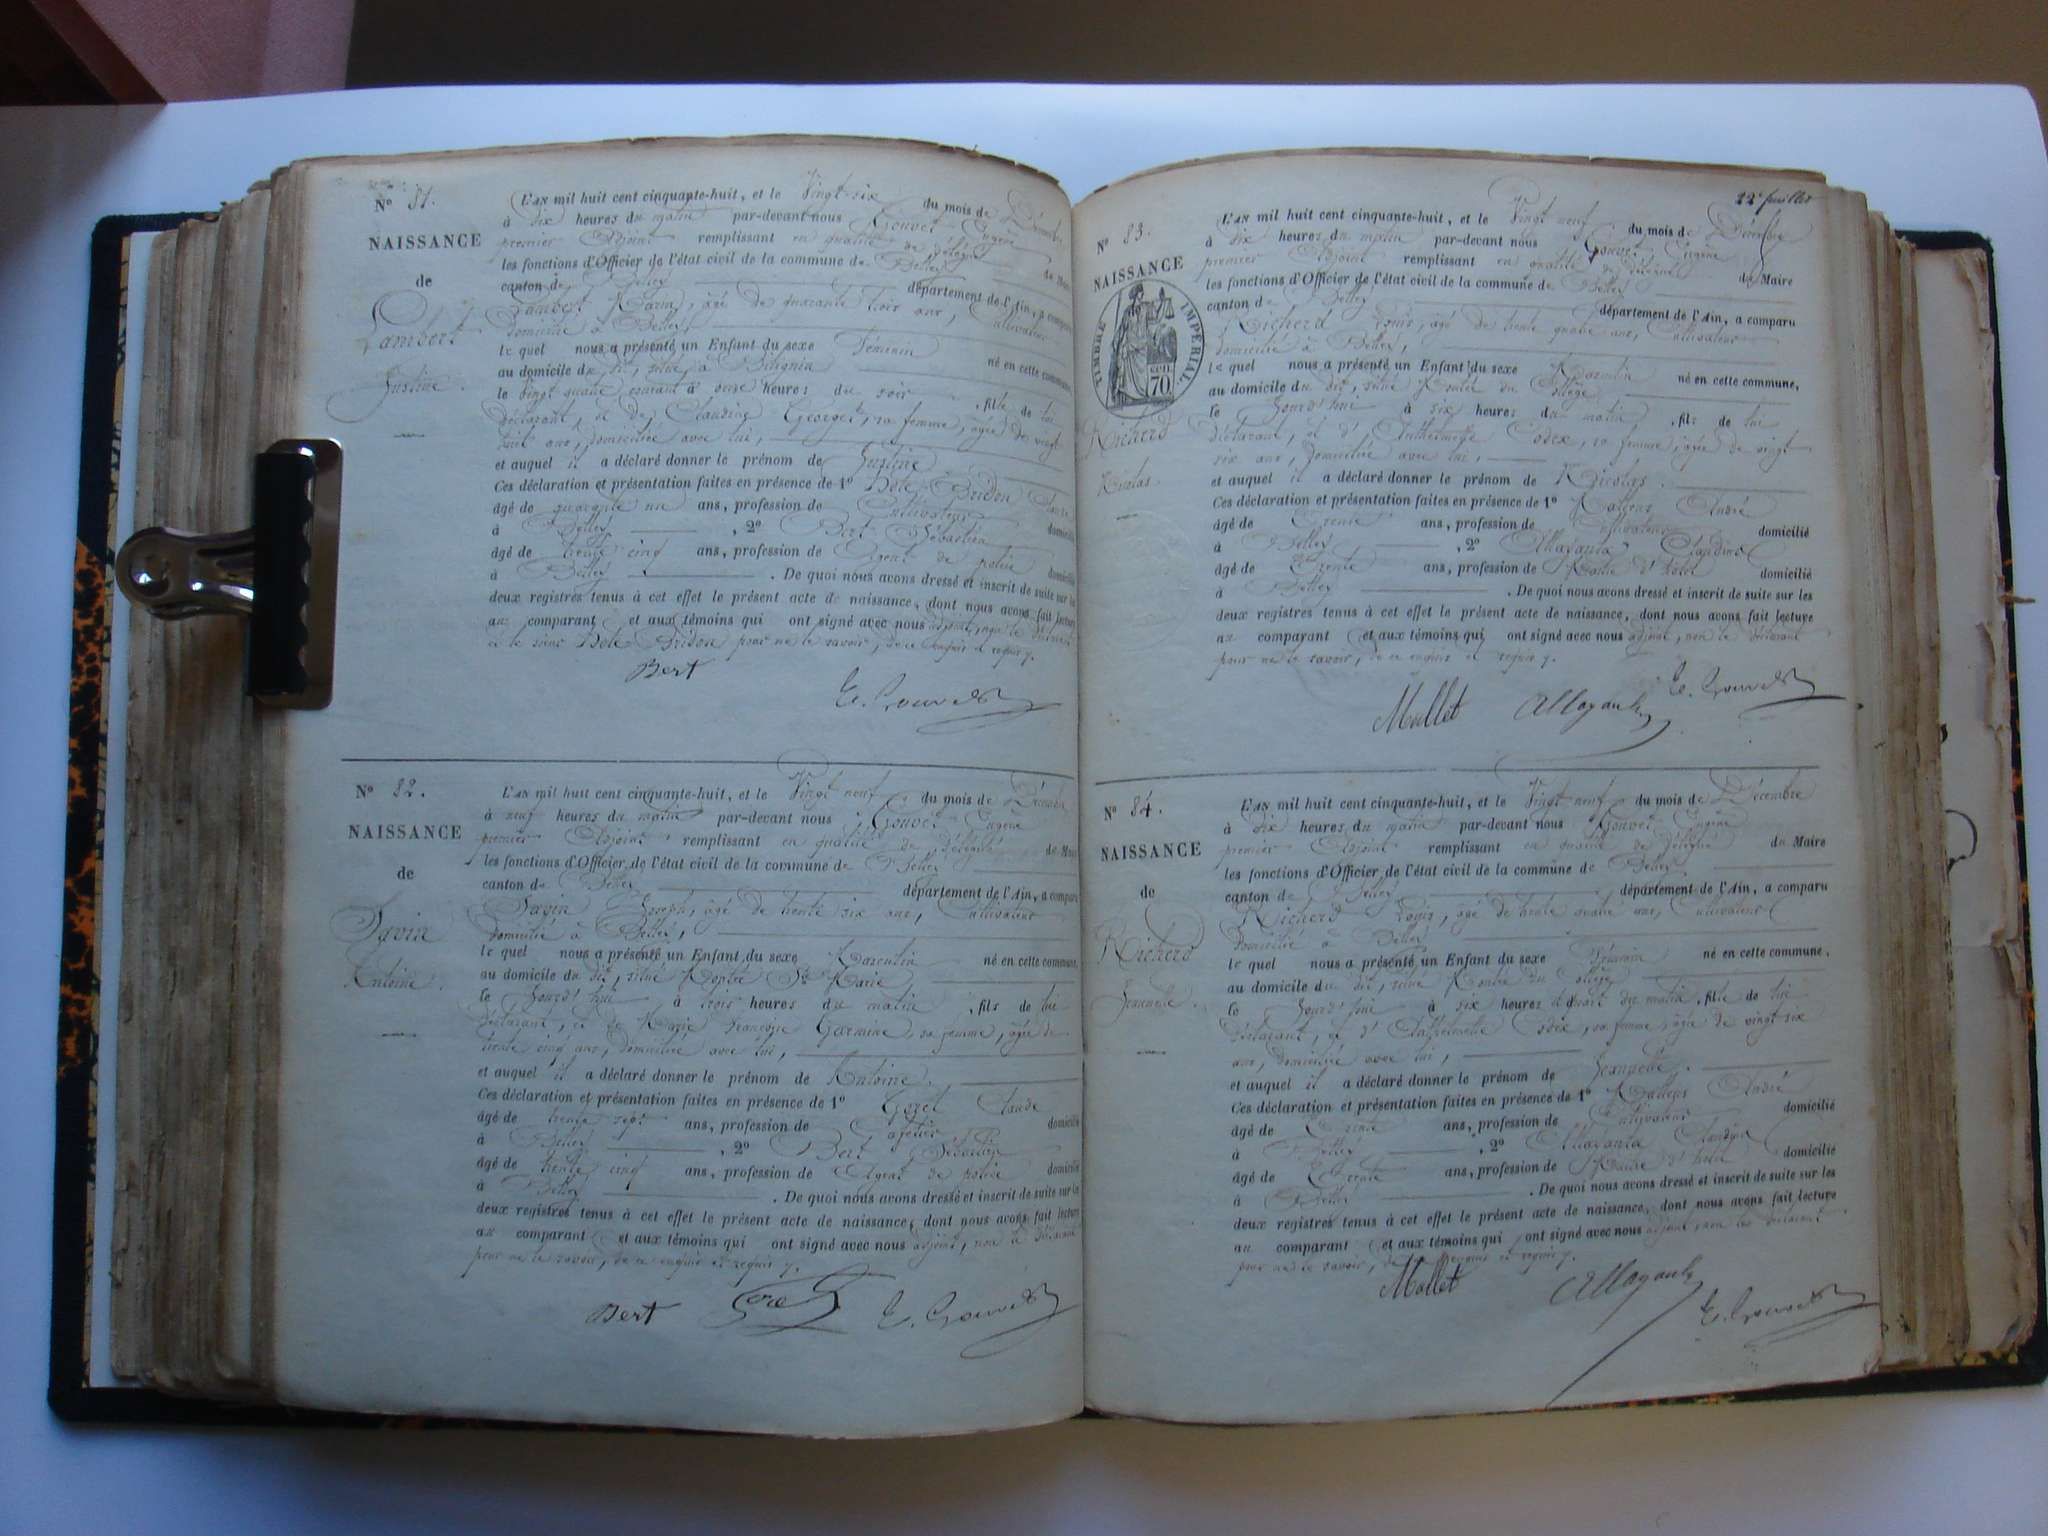 N° 81.
NAISSANCE
de
Lambert
Justine.
L'AN mil huit cent cinquante-huit, et le Vingt-six du mois de Décembre
à dix heures du matin par-devant nous Gouvet Eugène
premier Adjoint remplissant en qualité de délégué du Maire
les fonctions d'Officier de l'état civil de la commune de Belley
canton de Belley département de l'Ain, a comparu
Lambert, âgé de quarante trois ans, Cultivateur
domicilié à Belley,
le quel nous a présenté un Enfant du sexe féminin né en cette commune,
au domicile du dit, situé à Bilignin
le vingt quatre courant à onze heures du soir, fille de lui
déclarant, et de Claudine Georget, sa femme, âgée de vingt
huit ans, domiciliée avec lui,
et auquel il a déclaré donner le prénom de Justine
Ces déclaration et présentation faites en présence de 1° Bridon
âgé de quarante un ans, profession de Cultivateur domicilié
à Belley, 2° Bert Sébastien
âgé de trente cinq ans, profession de Agent de police domicilié
à Belley. De quoi nous avons dressé et inscrit de suite sur les
deux registres tenus à cet effet le présent acte de naissance, dont nous avons fait lecture
au comparant et aux témoins qui ont signé avec nous adjoint, non le déclarant
ni le sieur Bridon pour ne le savoir, de ce enquis et requis.
Bert
E. Gouvet
N° 82.
NAISSANCE
de
Savin
Antoine.
L'AN mil huit cent cinquante-huit, et le Vingt neuf du mois de Décembre
à neuf heures du matin par-devant nous Gouvet Eugène
premier Adjoint remplissant en qualité de délégué du Maire
les fonctions d'Officier de l'état civil de la commune de Belley
canton de Belley département de l'Ain, a comparu
Savin Joseph, âgé de trente six ans, Cultivateur
domicilié à Belley,
le quel nous a présenté un Enfant du sexe Masculin né en cette commune,
au domicile du dit, situé Montée Ste Marie,
le Jourd'hui à trois heures du matin, fils de lui
déclarant, et de Marie Françoise Garmine, sa femme, âgée de
trente cinq ans, domiciliée avec lui,
et auquel il a déclaré donner le prénom de Antoine.
Ces déclaration et présentation faites en présence de 1° Gozel Claude
âgé de trente sept ans, profession de Cafetier domicilié
à Belley, 2° Bert Sébastien
âgé de trente cinq ans, profession de Agent de police domicilié
à Belley. De quoi nous avons dressé et inscrit de suite sur les
deux registres tenus à cet effet le présent acte de naissance, dont nous avons fait lecture
au comparant et aux témoins qui ont signé avec nous adjoint, non le déclarant
pour ne le savoir, de ce enquis et requis.
Bert
E. Gouvet
22e feuillet
N° 83.
NAISSANCE
TIMBRE IMPERIAL
CEN. 70
Richerd
Nicolas.
L'AN mil huit cent cinquante-huit, et le Vingt neuf du mois de Décembre
à dix heures du matin par-devant nous Gouvet Eugène
premier Adjoint remplissant en qualité de délégué du Maire
les fonctions d'Officier de l'état civil de la commune de Belley
canton de Belley département de l'Ain, a comparu
Richerd Louis, âgé de trente quatre ans, Cultivateur
domicilié à Belley,
le quel nous a présenté un Enfant du sexe Masculin né en cette commune,
au domicile du dit, situé Montée du Collège
le Jourd'hui à six heures du matin, fils de lui
déclarant, et d'Anthelmette Codex, sa femme, âgée de vingt
six ans, domiciliée avec lui,
et auquel il a déclaré donner le prénom de Nicolas.
Ces déclaration et présentation faites en présence de 1° André
âgé de Trente ans, profession de Cultivateur domicilié
à Belley, 2° Claudine
âgé de Trente ans, profession de Maître d'hôtel domicilié
à Belley. De quoi nous avons dressé et inscrit de suite sur les
deux registres tenus à cet effet le présent acte de naissance, dont nous avons fait lecture
au comparant et aux témoins qui ont signé avec nous adjoint, non le déclarant
pour ne le savoir, de ce enquis et requis.
Mollet E. Gouvet
N° 84.
NAISSANCE
de
Richerd
Jeannette.
L'AN mil huit cent cinquante-huit, et le Vingt neuf du mois de Décembre
à dix heures du matin par-devant nous Gouvet Eugène
premier Adjoint remplissant en qualité de délégué du Maire
les fonctions d'Officier de l'état civil de la commune de Belley
canton de Belley département de l'Ain, a comparu
Richerd Louis, âgé de trente quatre ans, Cultivateur
domicilié à Belley
le quel nous a présenté un Enfant du sexe féminin né en cette commune,
au domicile du dit, situé Montée du Collège
le Jourd'hui à six heures du matin, fille de lui
déclarant, et d'Anthelmette Codex, sa femme, âgée de vingt six
ans, domiciliée avec lui,
et auquel il a déclaré donner le prénom de Jeannette.
Ces déclaration et présentation faites en présence de 1° André
âgé de Trente ans, profession de Cultivateur domicilié
à Belley, 2° Claudine
âgé de Trente ans, profession de Maître d'hôtel domicilié
à Belley. De quoi nous avons dressé et inscrit de suite sur les
deux registres tenus à cet effet le présent acte de naissance, dont nous avons fait lecture
au comparant et aux témoins qui ont signé avec nous adjoint, non le déclarant
pour ne le savoir, de ce enquis et requis.
Mollet
E. Gouvet